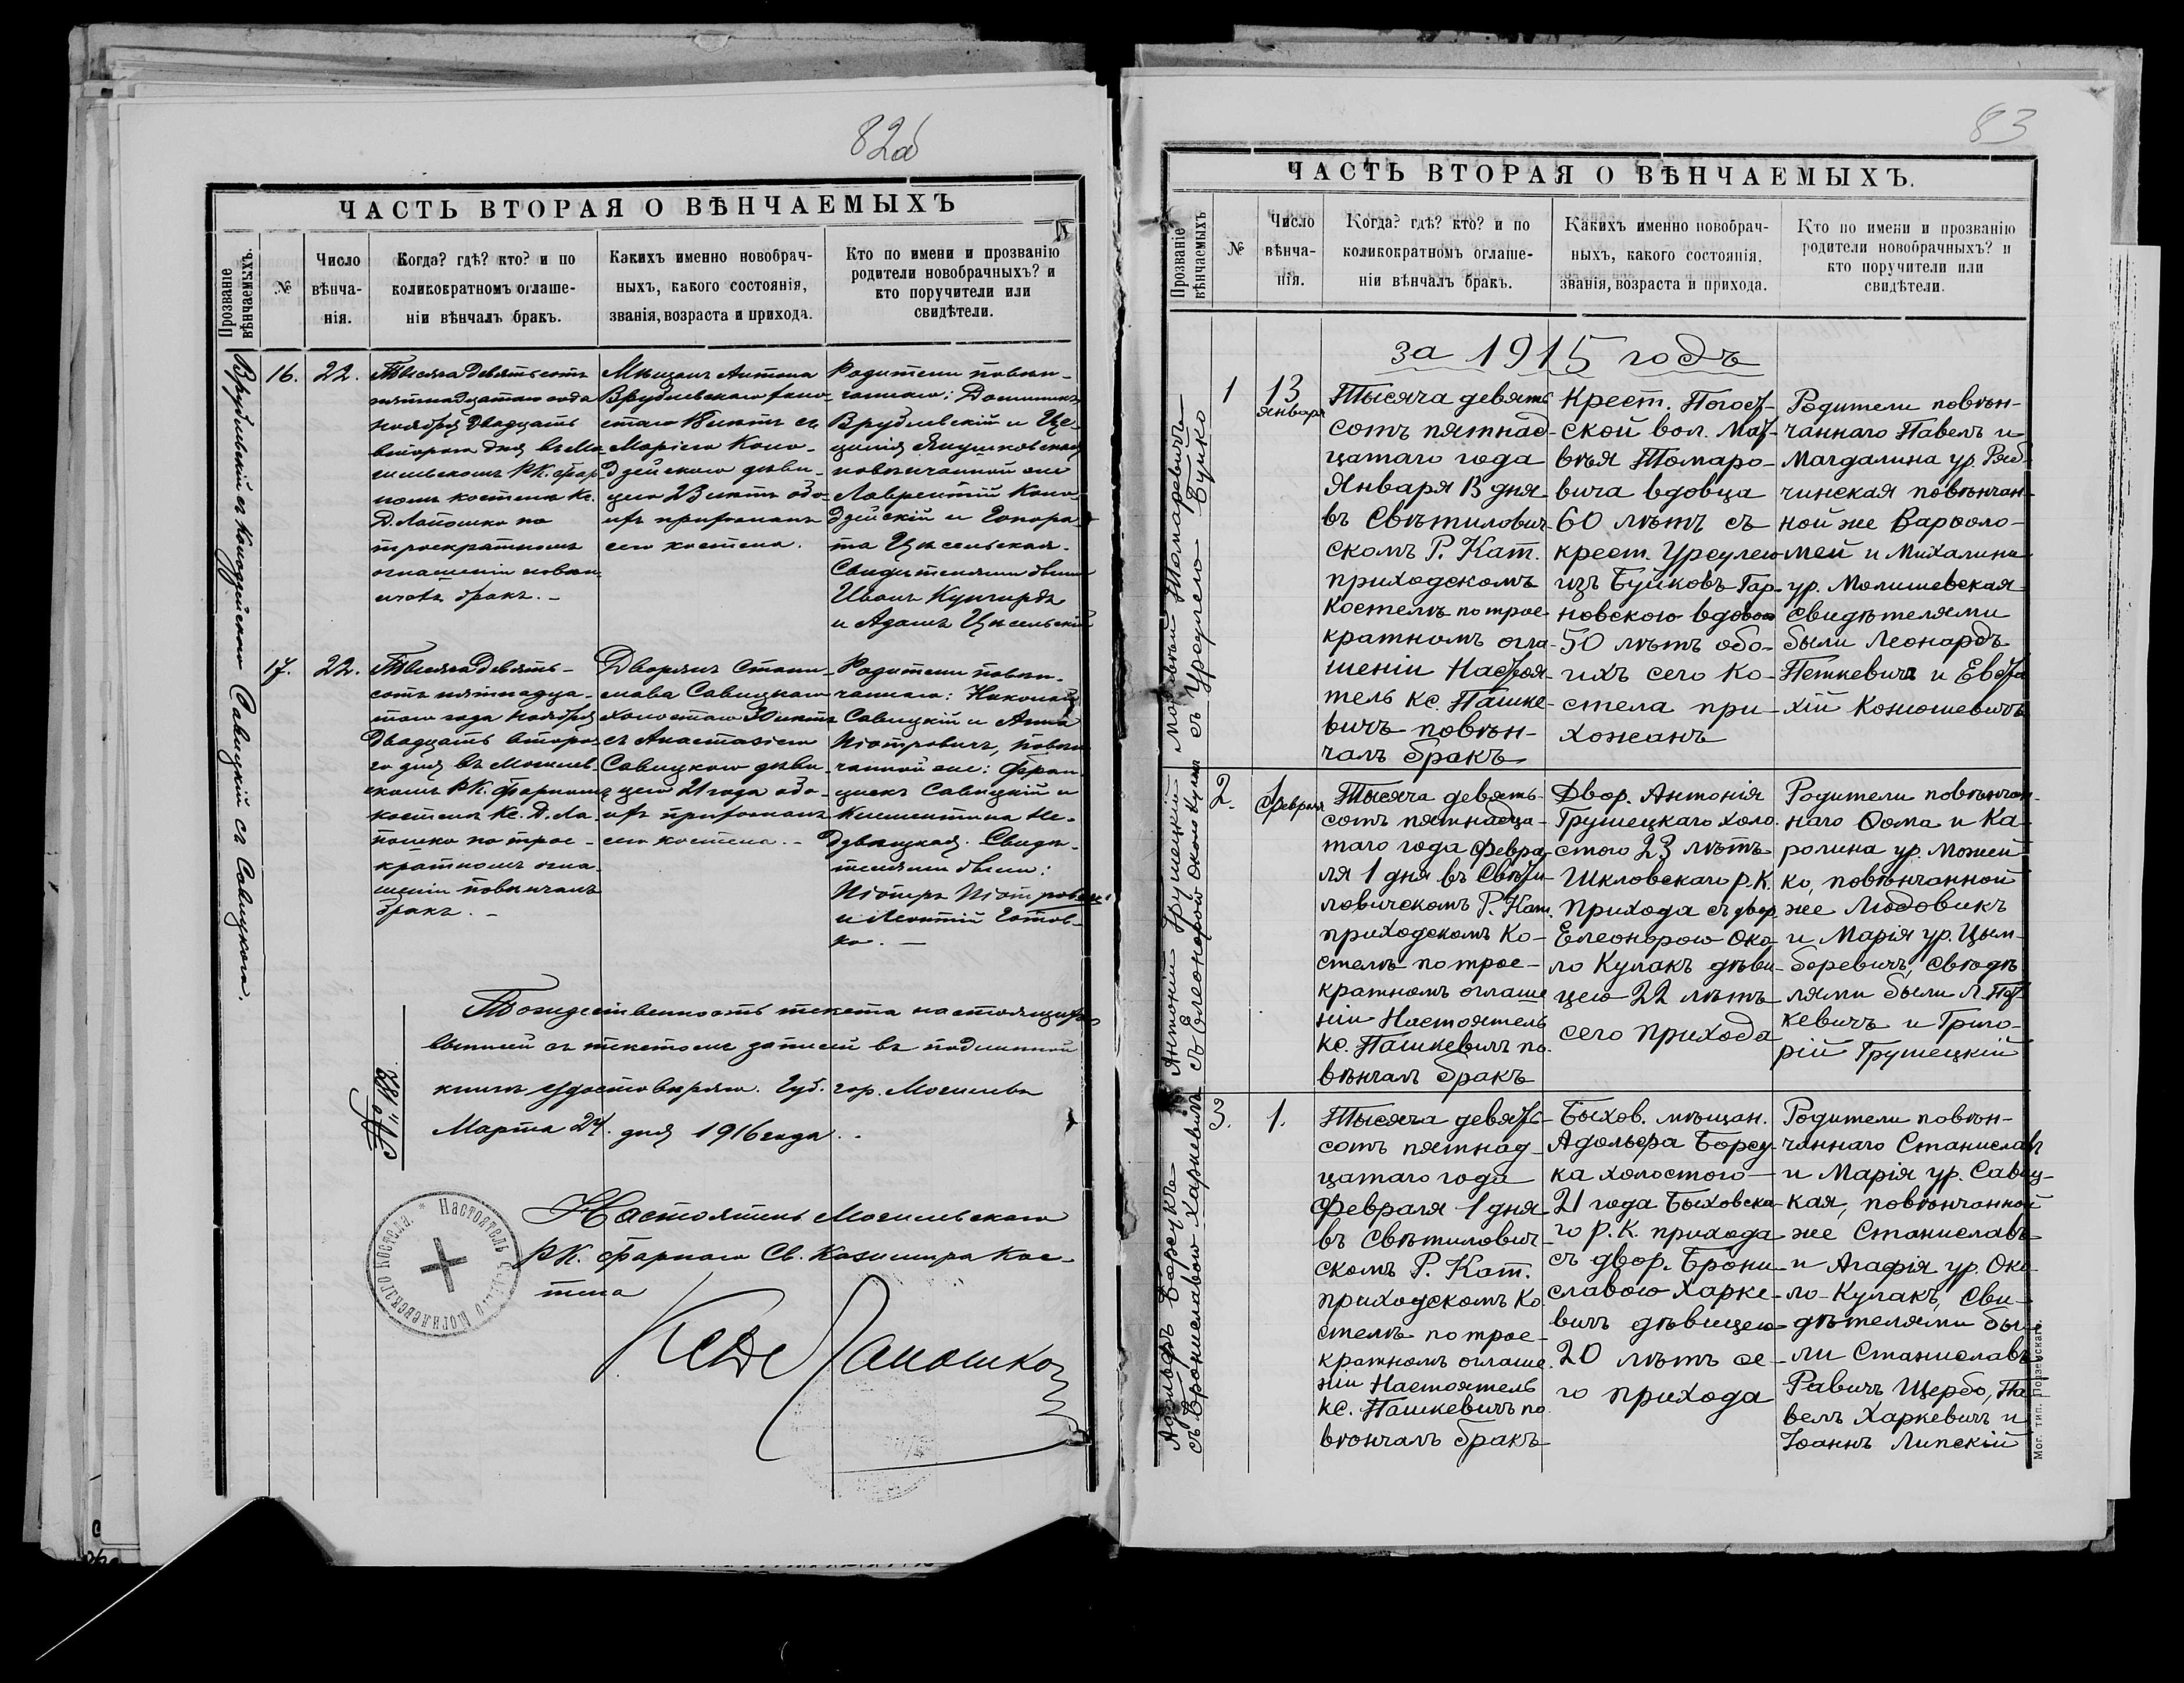 82об
ЧАСТЬ ВТОРАЯ О ВѢНЧАЕМЫХЪ
Прозваніе вѣнчаемыхъ.
№
Число вѣнча-
нія.
Когда? гдѣ? кто? и по
коликократномъ оглаше-
ніи вѣнчалъ бракъ.
Какихъ именно новобрач-
ныхъ, какого состоянія,
званія, возраста и прихода.
Кто по имени и прозванію
родители новобрачныхъ? и
кто поручители или
свидѣтели.
16.
22.
Тысяча девятьсотъ
пятнадцатаго года
Ноября двадцать
второго дня въ Мо-
гилевскомъ Р.К. фар-
номъ костелѣ Кс.
Д. Лапошко по
троекратномъ
оглашеніи повѣн-
чалъ бракъ. -
Мѣщанъ Антона
Врублевскаго холо-
стаго 18 лѣтъ съ
Маріею Коло-
дзейскою дѣви-
цею 23 лѣтъ обо-
ихъ прихожанъ
сего костела.
Родители повѣн-
чаннаго: Доминикъ
Врублевскій и Це-
цилія Янушковская
повѣнчанной же
Лаврентій Коло-
дзейскій и Гонора-
та Цѣсельская.
Свидѣтелями были
Иванъ
и Адамъ Цѣсельскій
17.
22.
Тысяча девять-
сотъ пятнадца-
таго года Ноября
двадцать второ-
го дня въ Могилев-
скомъ Р.К. фарномъ
костелѣ Кс. Д. Ла-
пошко по трое-
кратномъ огла-
шеніи повѣнчалъ
бракъ. -
Дворянъ Стани-
слава Савицкаго
холостаго 30 лѣтъ
съ Анастасіею
Савицкою дѣви-
цею 21 года обо-
ихъ прихожанъ
сего костела. -
Родители повѣн-
чаннаго: Николай
Савицкій и Анна
Піотровичъ, повѣн-
чанной же: Фран-
цискъ Савицкій и
Клементина Не-
дзвѣцкая. Свидѣ-
телями были:
Піотръ Піотровичъ
и Леонтій Готов-
ко. -
Врублевскій съ Колодзейскою Савицкій съ Савицкою.
Тождественность текста настоящихъ
выписей съ текстомъ записей въ подлинной
книгѣ удостовѣряю. Губ. гор. Могилевъ
Марта 24. дня 1916 года.
Настоятель Могилевскаго
Р.К. фарнаго Св. Казимира Кос-
тела
Ксдзъ Д Лапошко
83
ЧАСТЬ ВТОРАЯ О ВѢНЧАЕМЫХЪ.
Прозваніе вѣнчаемыхъ
№
Число
вѣнча-
нія.
Когда? гдѣ? кто? и по
коликократномъ оглаше-
ніи вѣнчалъ бракъ.
Какихъ именно новобрач-
ныхъ, какого состоянія,
званія, возраста и прихода.
Кто по имени и прозванію
родители новобрачныхъ? и
кто поручители или
свидѣтели.
за 1915 годъ
Матвѣй Томаревичъ
съ Урсулею Буйко
1
13
Января
Тысяча девять
сотъ пятнад-
цатаго года
Января 13 дня
въ Свѣтилович-
скомъ Р. Кат.
приходскомъ
Костелѣ по трое-
кратномъ огла-
шеніи Настоя-
тель кс. Пашке-
вичъ повѣн-
чалъ бракъ
Крест. Погост-
ской вол. Мат-
вѣя Томаре-
вича вдовца
60 лѣтъ съ
крест. Урсулею
изъ Буйковъ Тар-
новскою вдовою
50 лѣтъ обо-
ихъ сего Ко-
стела при-
хожанъ
Родители повѣн-
чаннаго Павелъ и
Магдалина ур. Ряб-
чинская повѣнчан-
ной же Варѳоло-
мей и Михалина
ур. Малишевская
свидѣтелями
были Леонардъ
Петкевичъ и Евста-
хій Конюшевичъ
Антоній Грушецкій
съ Елеонорою Около Кулакъ
2.
1
февраля
Тысяча девять-
сотъ пятнадца-
таго года Февра-
ля 1 дня въ Свѣти-
ловичскомъ Р. Кат.
приходскомъ Ко-
стелѣ по трое-
кратномъ оглаше
ніи Настоятель
кс. Пашкевичъ по-
вѣнчалъ бракъ
Двор. Антонія
Грушецкаго холо-
стого 23 лѣтъ
Шкловскаго р.К.
прихода съ двор.
Елеонорою Око-
ло Кулакъ дѣви-
цею 22 лѣтъ
сего прихода
Родители повѣнчан-
наго Ѳома и Ка-
ролина ур. Можей-
ко, повѣнчанной
же Людовикъ
и Марія ур. Цым-
боревичъ, свидѣ
лями были Л. Пет-
кевичъ и Григо-
рій Грушецкій
Адольфъ Борсукъ
съ Брониславою Харкевичъ
3.
1.
Тысяча девять-
сотъ пятнад-
цатаго года
Февраля 1 дня
въ Свѣтилович-
скомъ Р. Кат.
приходскомъ Ко-
стелѣ по трое-
кратномъ оглаше-
ніи Настоятель
кс. Пашкевичъ по-
вѣнчалъ бракъ
Быхов. мѣщан.
Адольфа Борсу-
ка холостого
21 года Быховска-
го Р.К. прихода
съ двор. Брони-
славою Харке-
вичъ дѣвицею
20 лѣтъ се-
го прихода
Родители повѣн-
чаннаго Станиславъ
и Марія ур. Савиц-
кая, повѣнчанной
же Станиславъ
и Агафія ур. Око-
ло-Кулакъ, Сви-
дѣтелями бы-
ли Станиславъ
Равичъ Щербо, Па-
велъ Харкевичъ и
Іоаннъ Липскій
Мог. тип. Подземскаго.